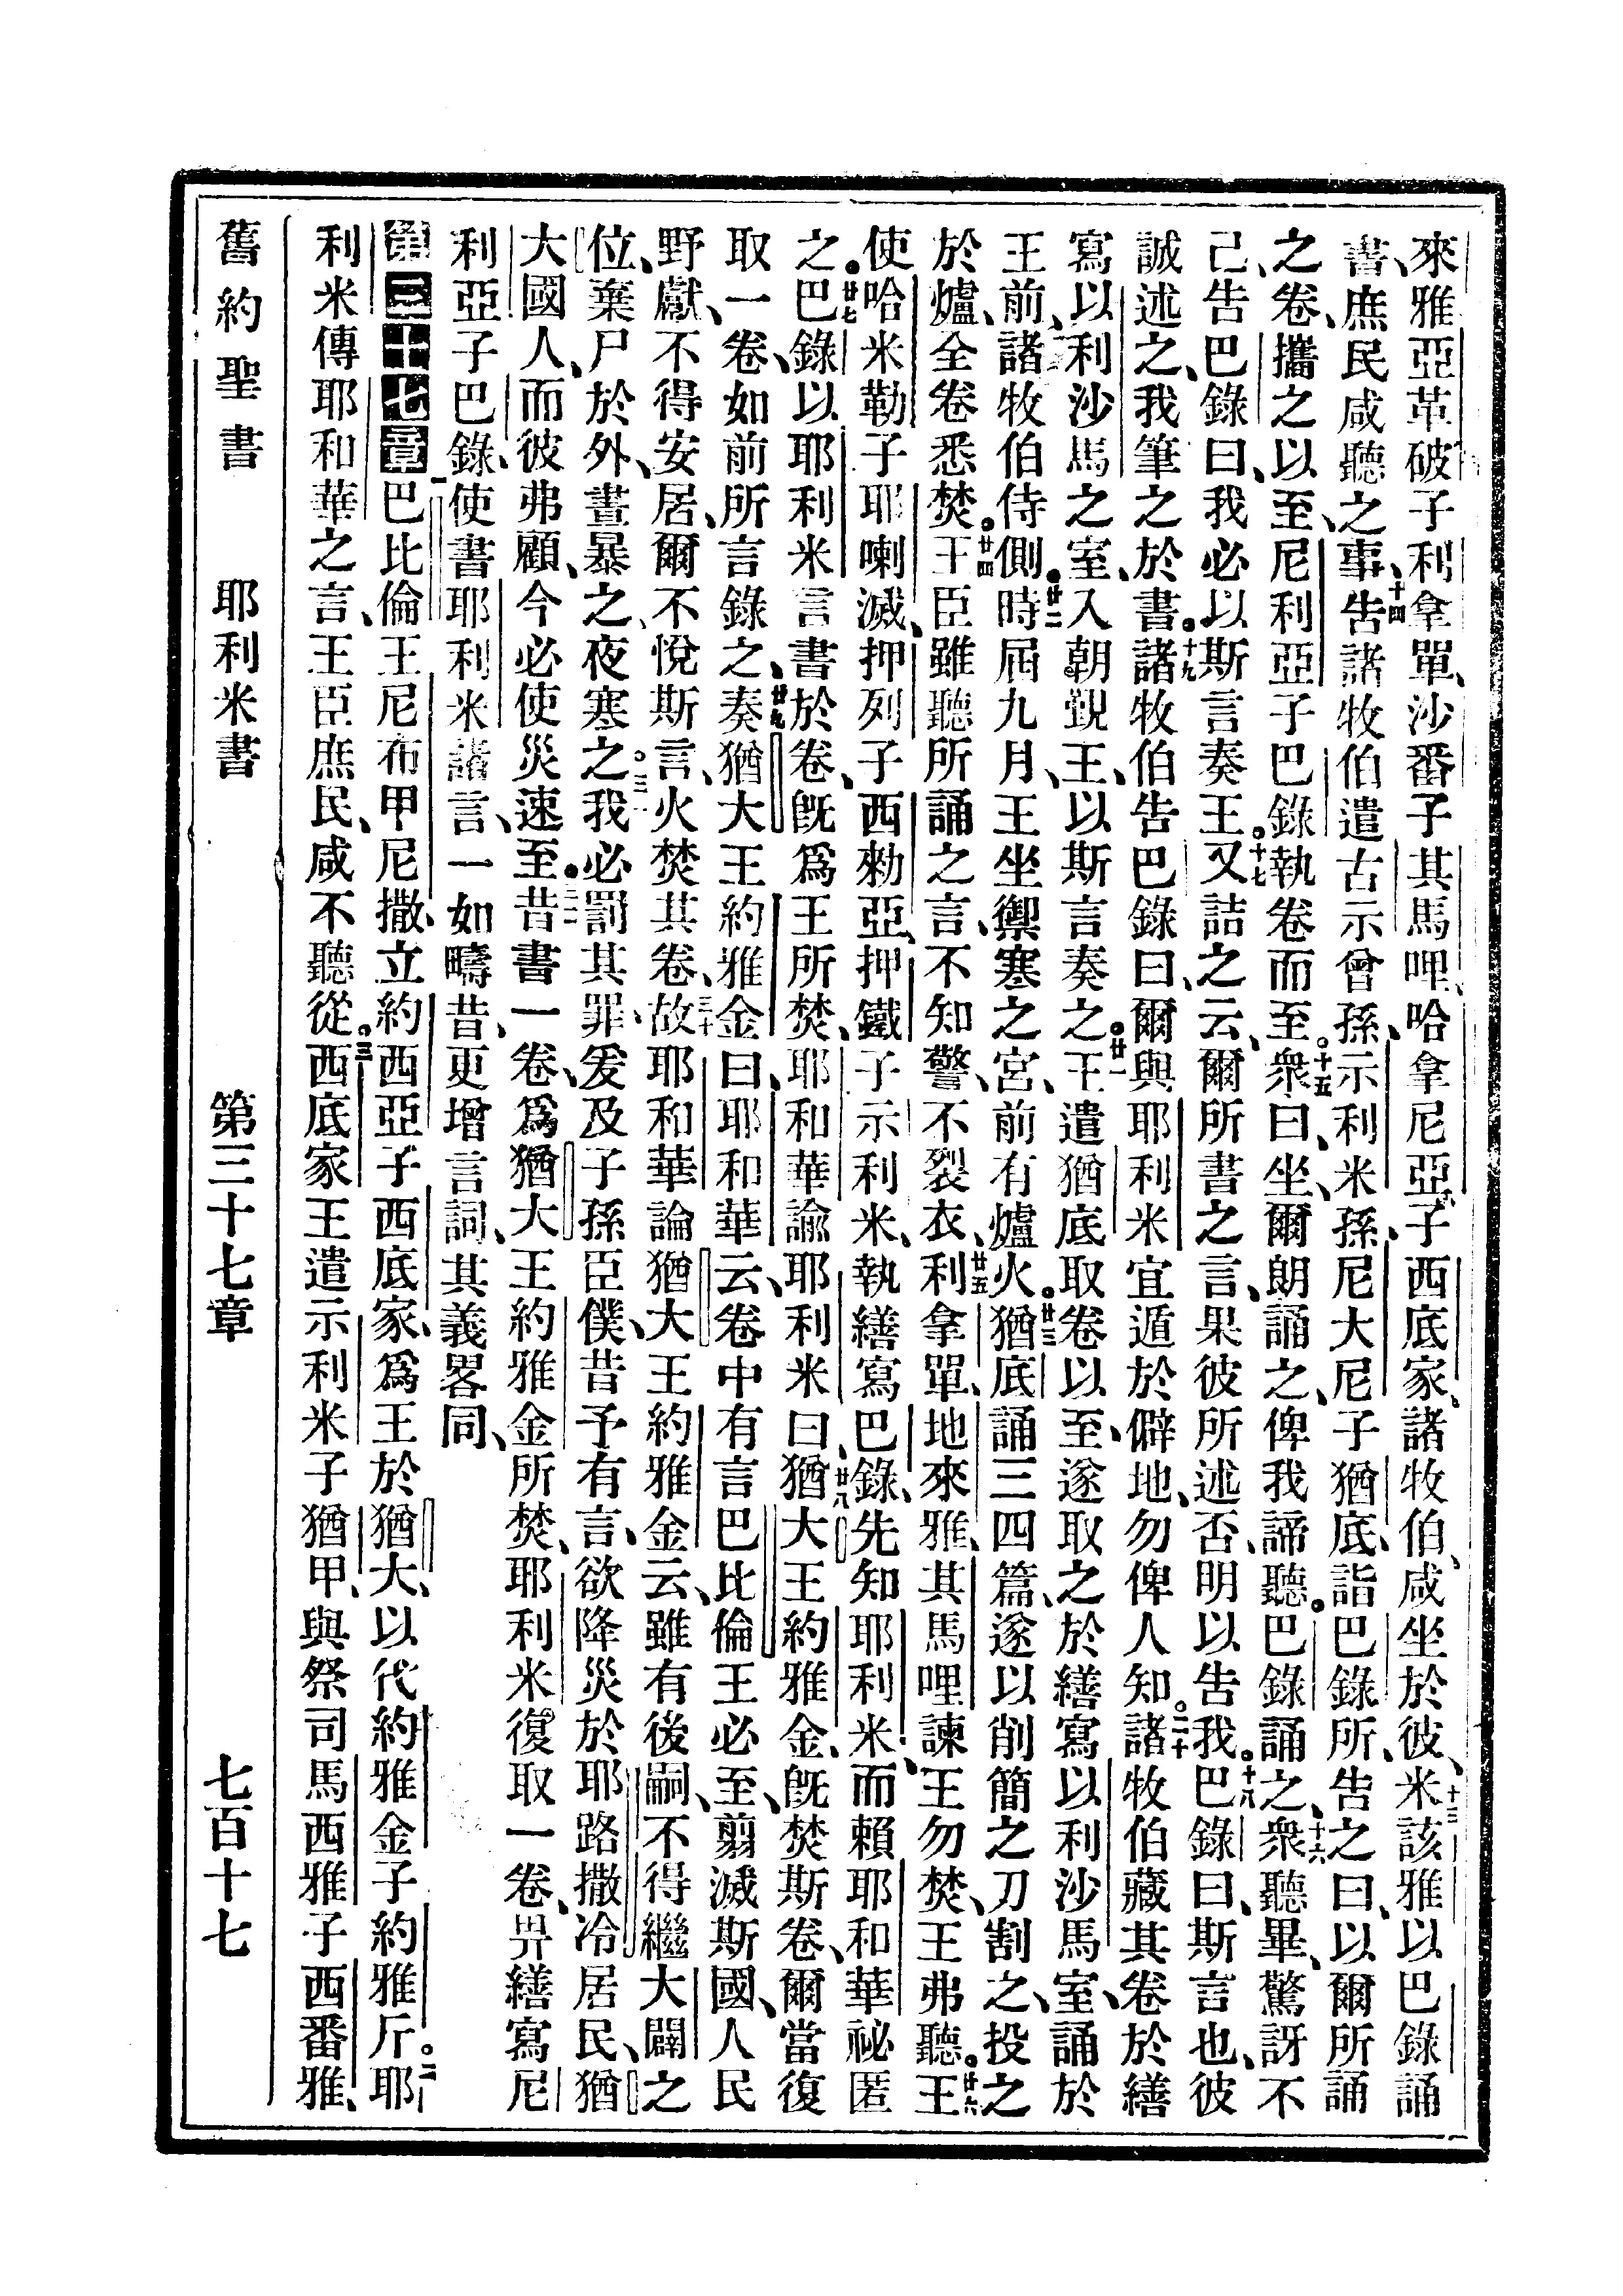 來雅亞革破子利拿單、沙番子其馬哩、哈拿尼亞子西底家、諸牧伯、咸坐於彼、十三米該雅以巴錄誦
書、庶民咸聽之事、十四告諸牧伯遣古示曾孫、示利米孫、尼大尼子猶底、詣巴錄所、告之曰、以爾所誦
之卷、攜之以至、尼利亞子巴錄執卷而至。十五衆曰、坐、爾朗誦之、俾我諦聽。巴錄誦之、十六衆聽畢、驚訝不
己、告巴錄曰、我必以斯言奏王。十七又詰之云、爾所書之言、果彼所述否、明以告我。十八巴錄曰、斯言也、彼
誠述之、我筆之於書。十九諸牧伯告巴錄曰、爾與耶利米宜遁於僻地、勿俾人知。二十諸牧伯藏其卷於繕
寫以利沙馬之室、入朝覲王、以斯言奏之。廿一王遣猶底取卷以至、遂取之於繕寫以利沙馬室、誦於
王前、諸牧伯侍側。廿二時屆九月、王坐禦寒之宮、前有爐火。廿三猶底誦三四篇、遂以削簡之刀割之、投之
於爐、全卷悉焚。廿四王臣雖聽所誦之言、不知警、不裂衣、廿五利拿單、地來雅、其馬哩諫王勿焚、王弗聽。廿六王
使哈米勒子耶喇滅、押列子西勑亞、押鐵子示利米、執繕寫巴錄、先知耶利米、而賴耶和華祕匿
之。廿七巴錄以耶利米言書於卷、旣爲王所焚、耶和華諭耶利米曰、廿八猶大王約雅金、旣焚斯卷、爾當復
取一卷、如前所言錄之、廿九奏猶大王約雅金曰、耶和華云、卷中有言巴比倫王必至、翦滅斯國、人民
野獻、不得安居、爾不悅斯言、火焚其卷、三十故耶和華論猶大王約雅金云、雖有後嗣、不得繼大闢之
位、棄尸於外、晝暴之、夜寒之。三一我必罰其罪、爰及子孫臣僕、昔予有言、欲降災於耶路撒冷居民、猶
大國人、而彼弗顧、今必使災速至。三二昔書一卷、爲猶大王約雅金所焚、耶利米復取一卷、畀繕寫尼
利亞子巴錄、使書耶利米諸言、一如疇昔、更增言詞、其義畧同、
第三十七章 一巴比倫王尼布甲尼撒、立約西亞子西底家、爲王於猶大、以代約雅金子約雅斤。二耶
利米傳耶和華之言、王臣庶民、咸不聽從。三西底家王遣示利米子猶甲、與祭司馬西雅子西番雅、
舊約聖書 耶利米書 第三十七章 七百十七